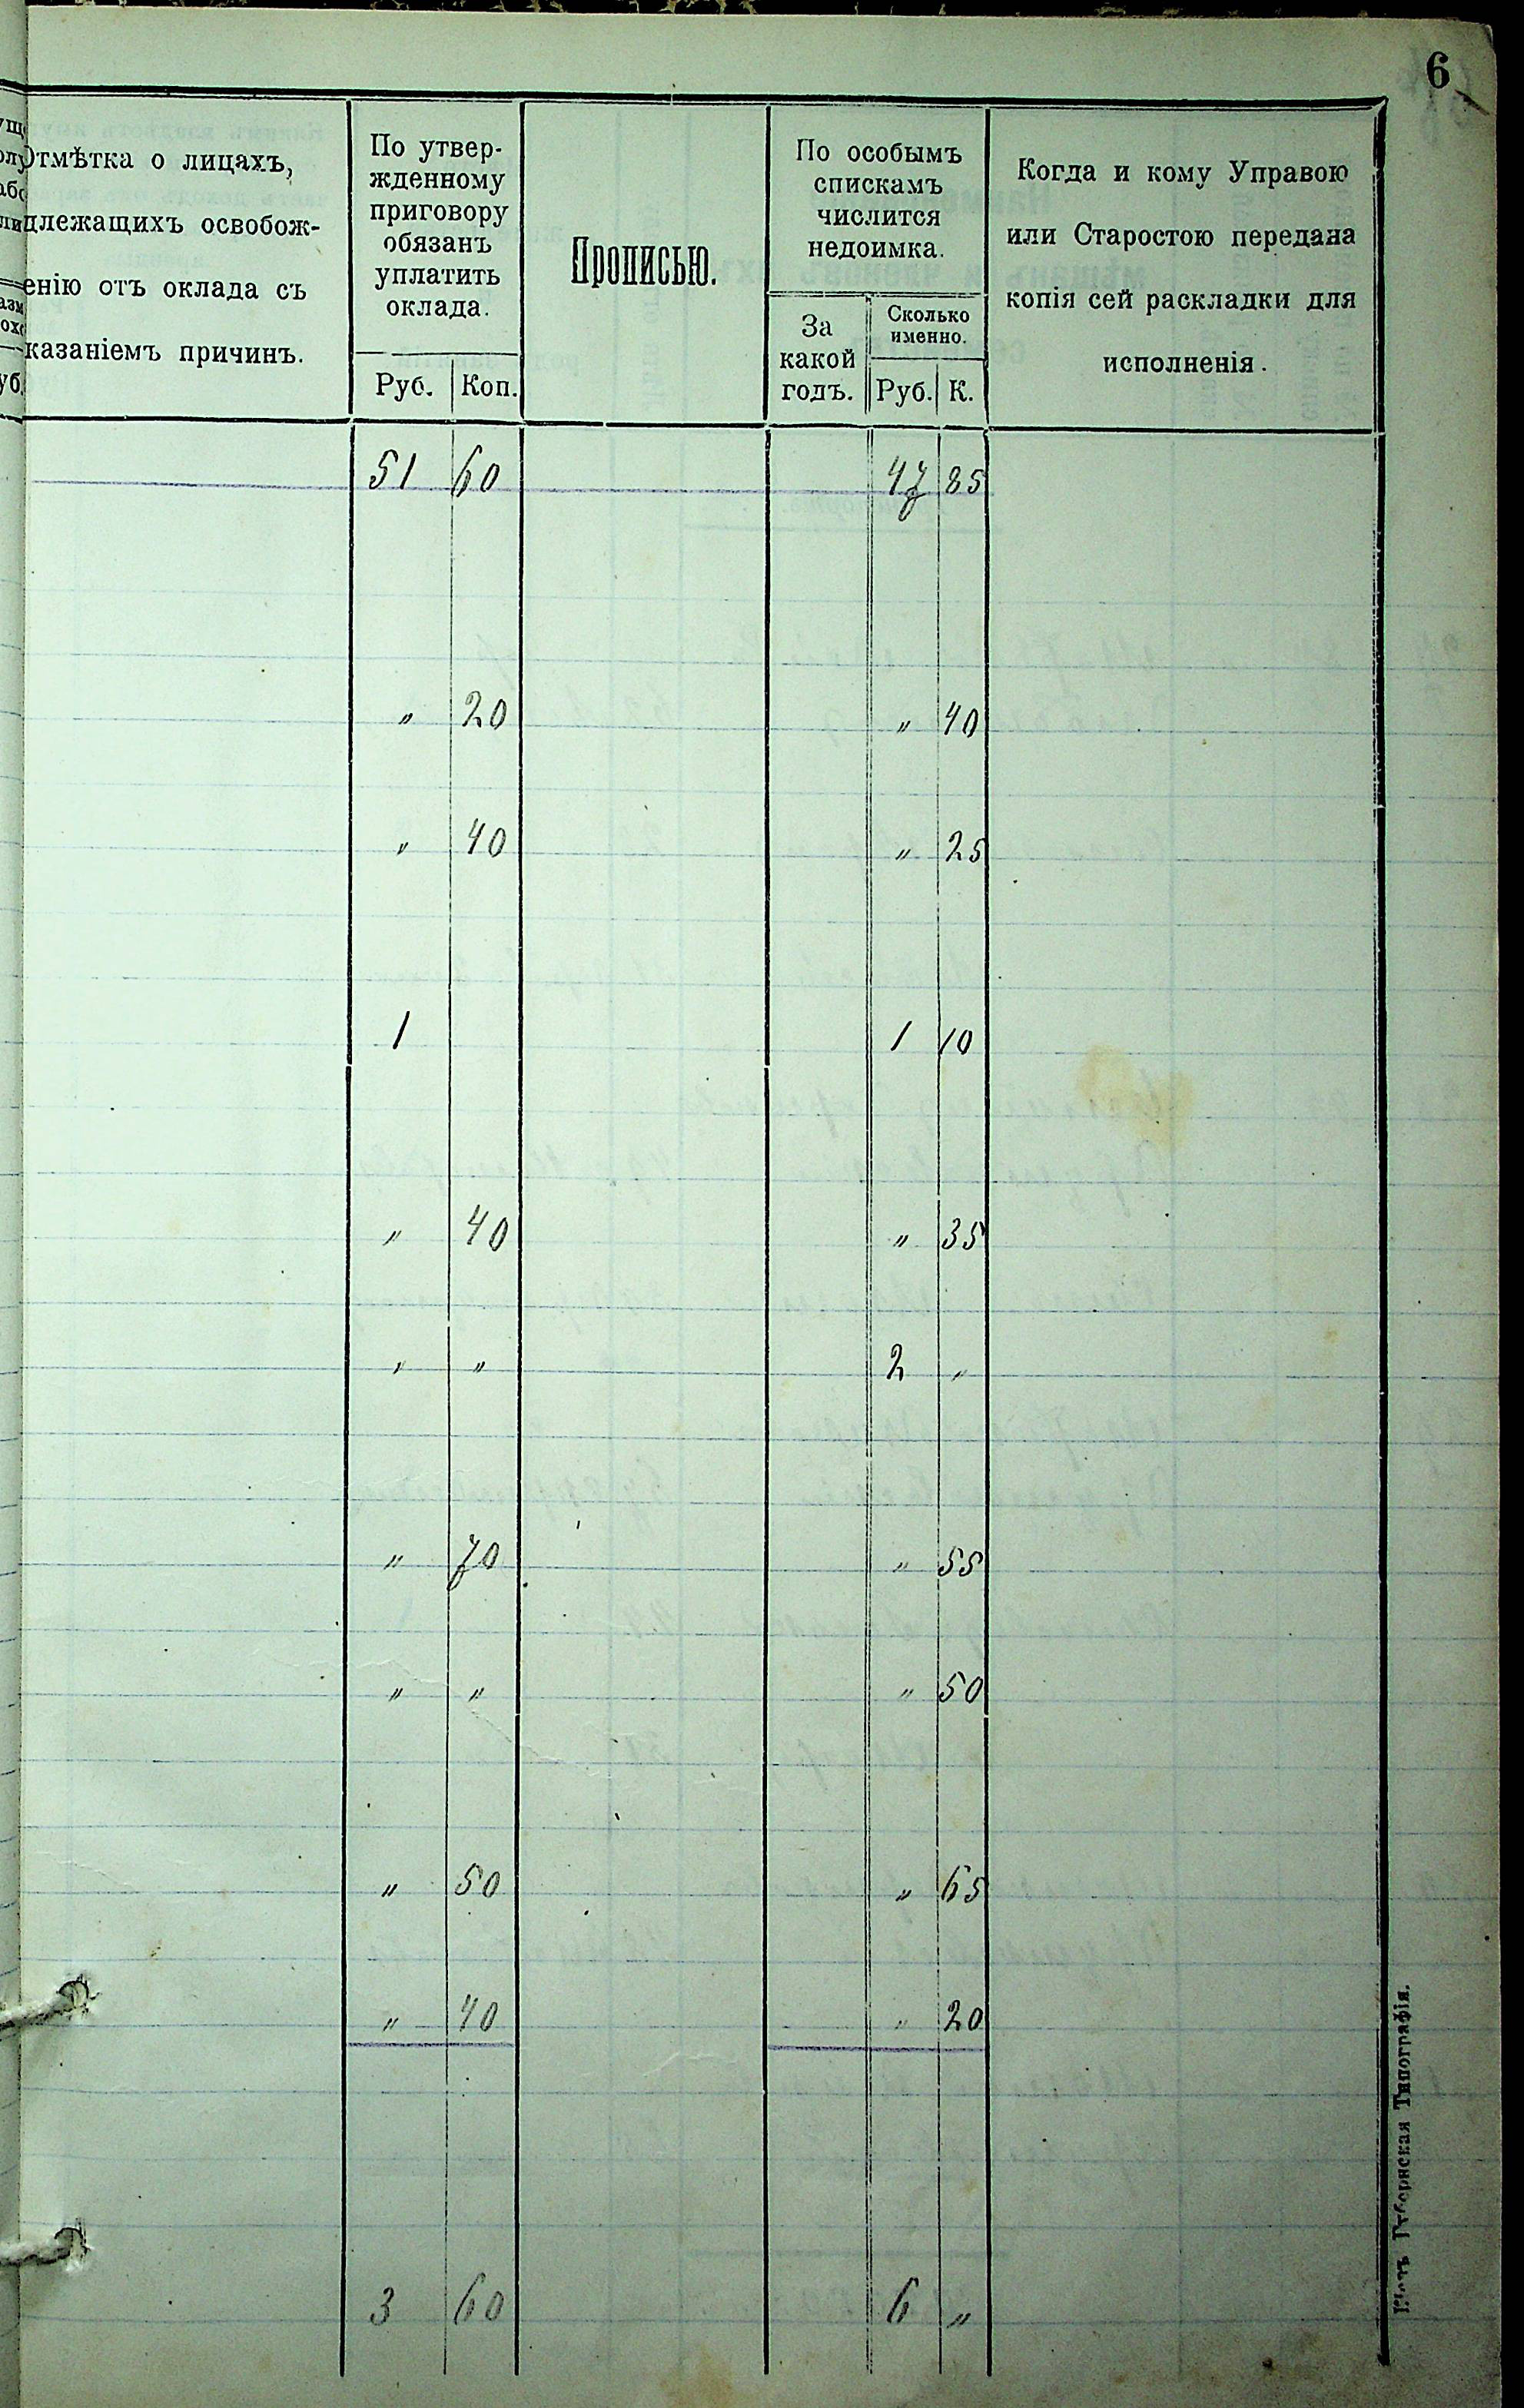 6
Отмѣтка о лицахъ,
длежащихъ освобож-
енію отъ оклада съ
казаніемъ причинъ.
По утвер-
жденному
приговору
обязанъ
уплатить
оклада.
Руб. Коп.
Прописью.
По особымъ
спискамъ
числится
недоимка.
За
какой
годъ.
Сколько
именно.
Руб. К.
Когда и кому Управою
или Старостою передана
копія сей раскладки для
исполненія.
51 60 47 85
" 20 " 40
" 40 " 25
1 1 10
" 40 " 35
" " 2 "
" 70 " 55
" " " 50
" 50 " 65
" 40 " 20
3 60 6 "
Губернская Типографія.